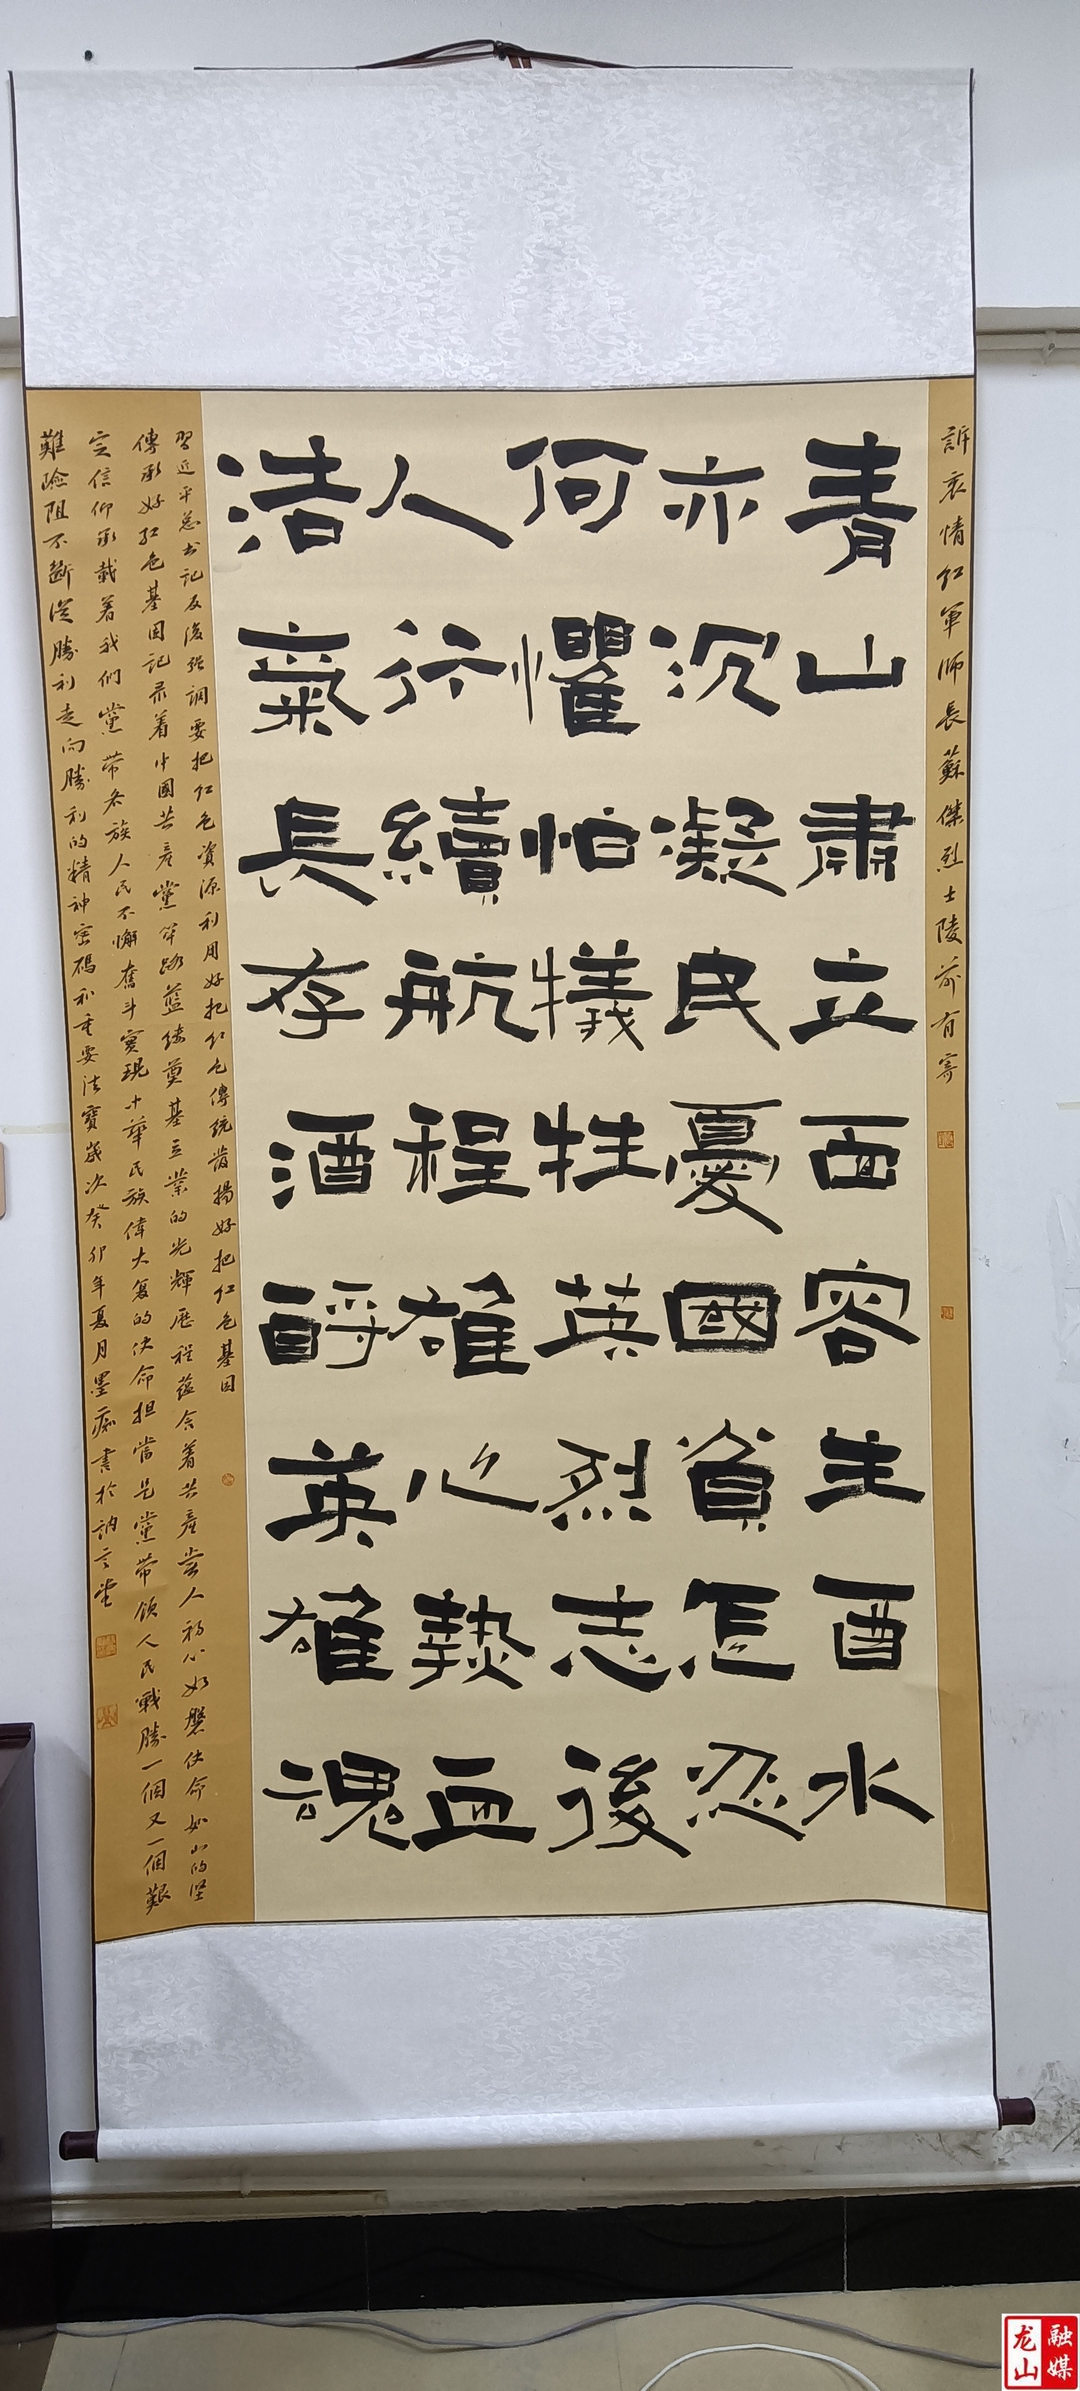 訴衷情紅軍師長蘇傑烈士陵前有寄
青山肅立面容生酉水
亦沉凝民憂國貧怎忍
何懼怕犠牲英烈志後
人行續航程雄心執血
浩氣長存酒酹英雄魂
習近平总书记反復强調要把红色資源利用好把红色傳統發揚好把红色基因
傳承好红色基因記录着中國共産黨筚路蓝縷奠基立業的光輝歷程蕴含着共産黨人初心如磐使命如山的坚
定信仰承載着我们黨带各族人民不懈奮斗實現中華民族偉大复的决命担當是黨带领人民戰勝一個又一個艱
難險阻不斷從勝利走向勝利的精神密碼和重要法寶歲次癸卯年夏月墨痴書於訥言堂
龙山
融媒